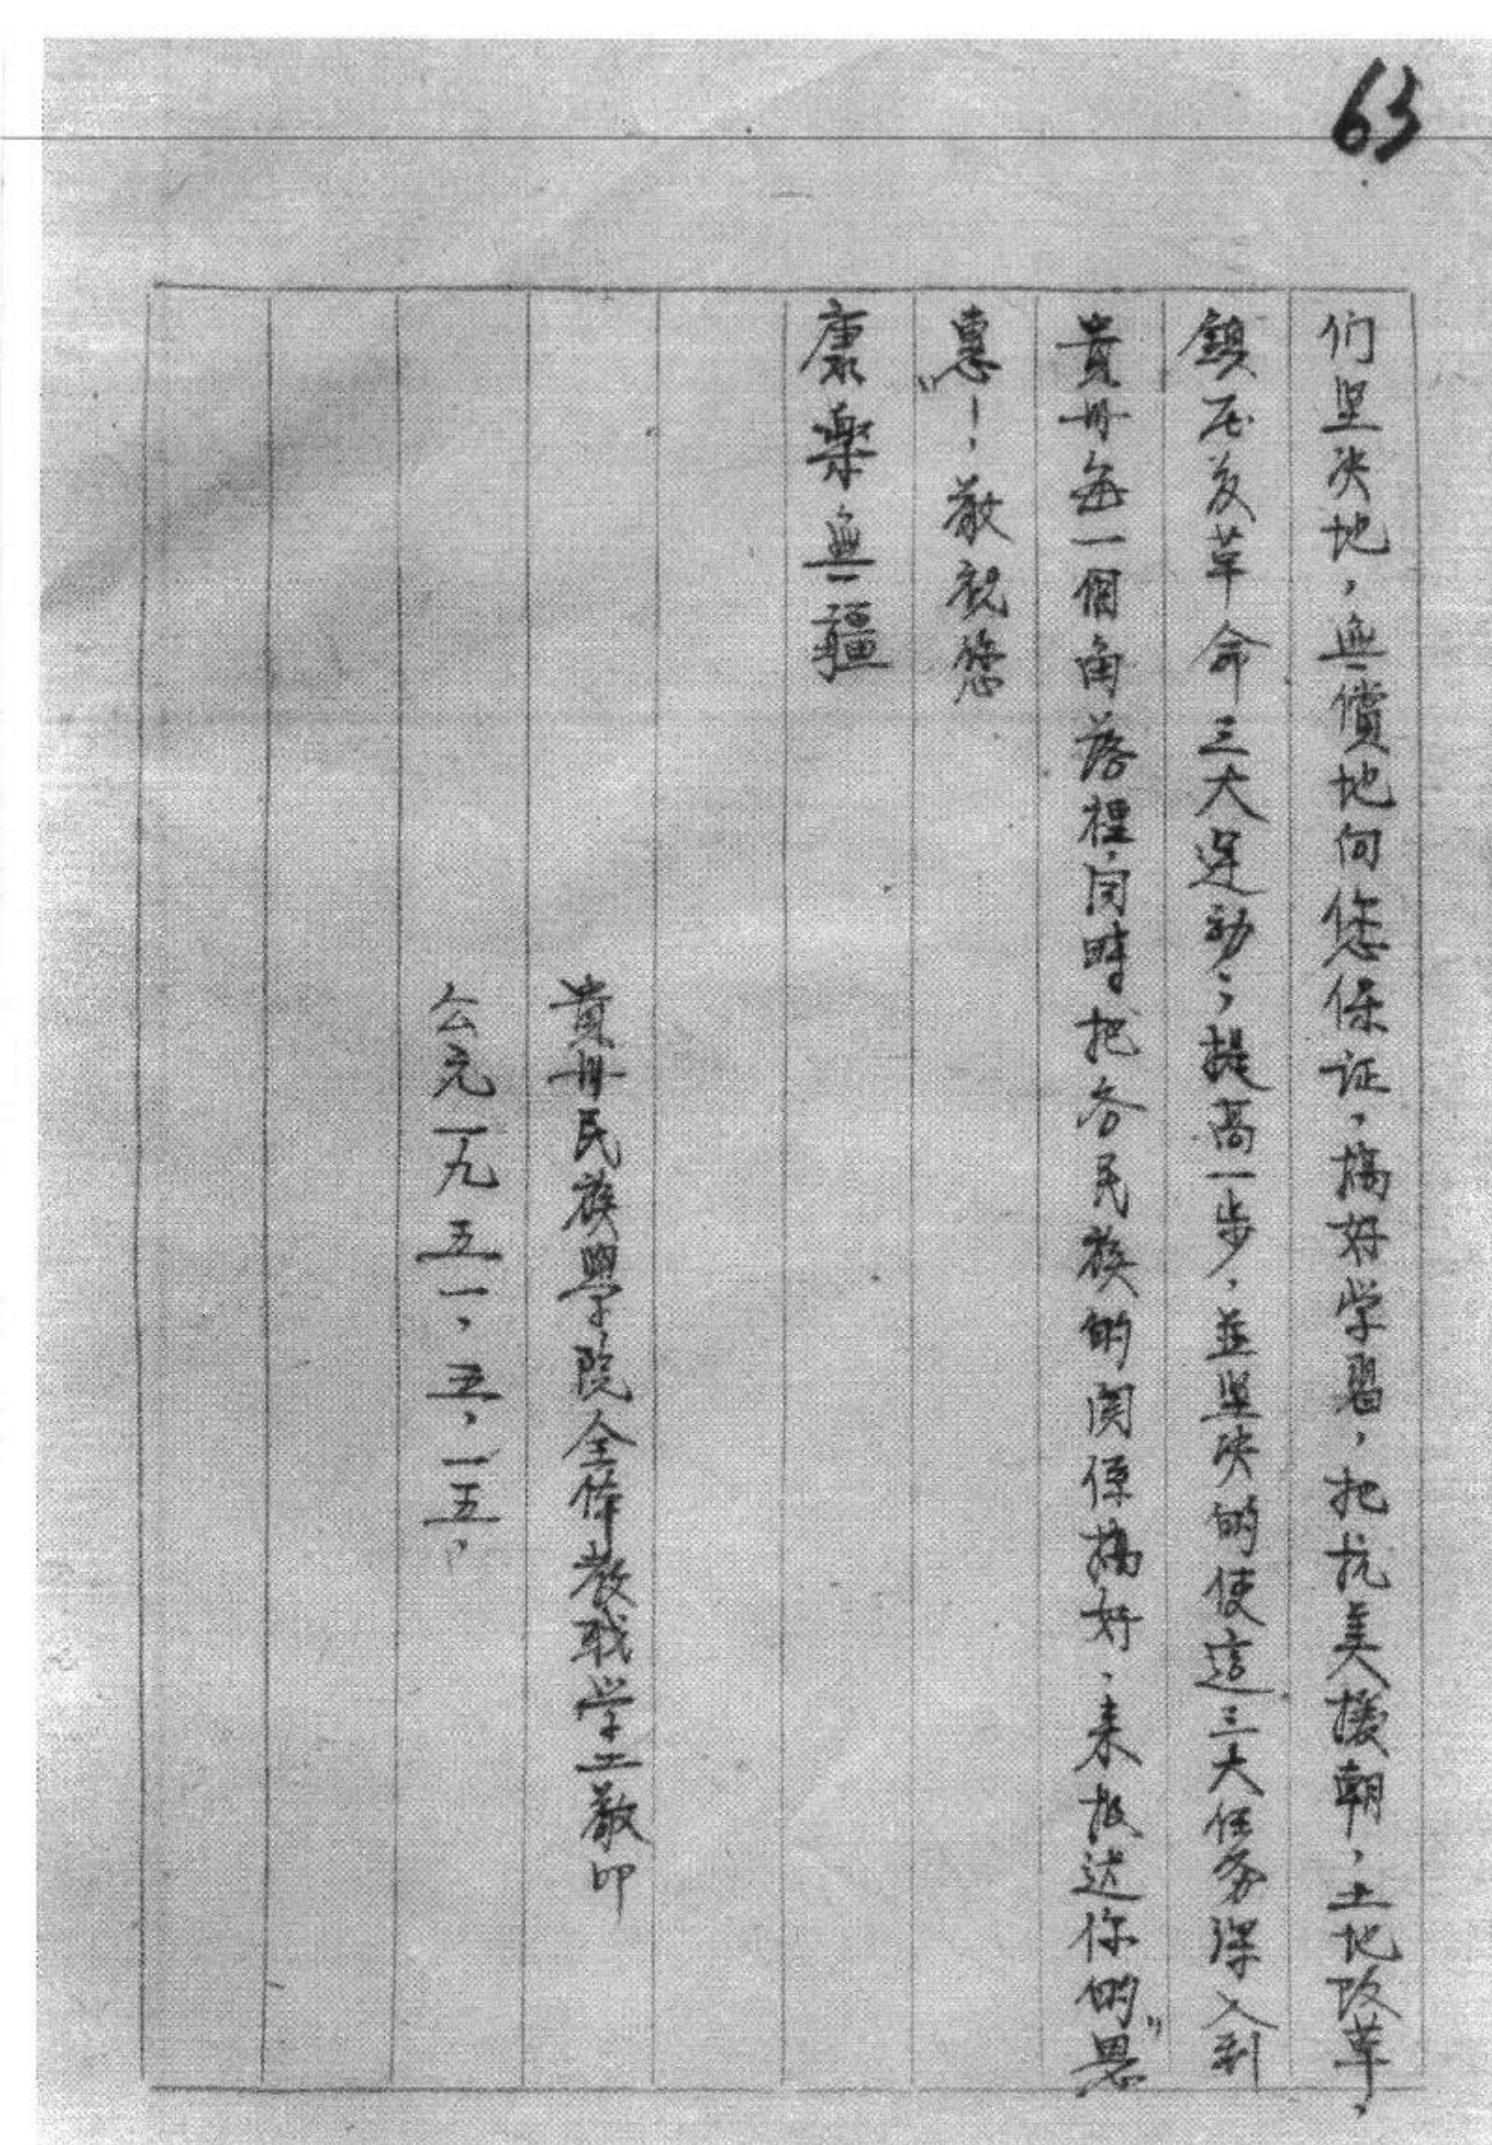 63
们坚决地，無償地向您保证，搞好学習，把抗美援朝，土地改革，
鎮压反革命三大运动；提高一步，並坚决的使這三大任务深入到
貴州每一個角落裡，同時把各民族的関係搞好，来报达你的“恩
惠”！，敬祝您
康樂無疆
貴州民族學院全体教职学工敬印
公元一九五一，五，一五，